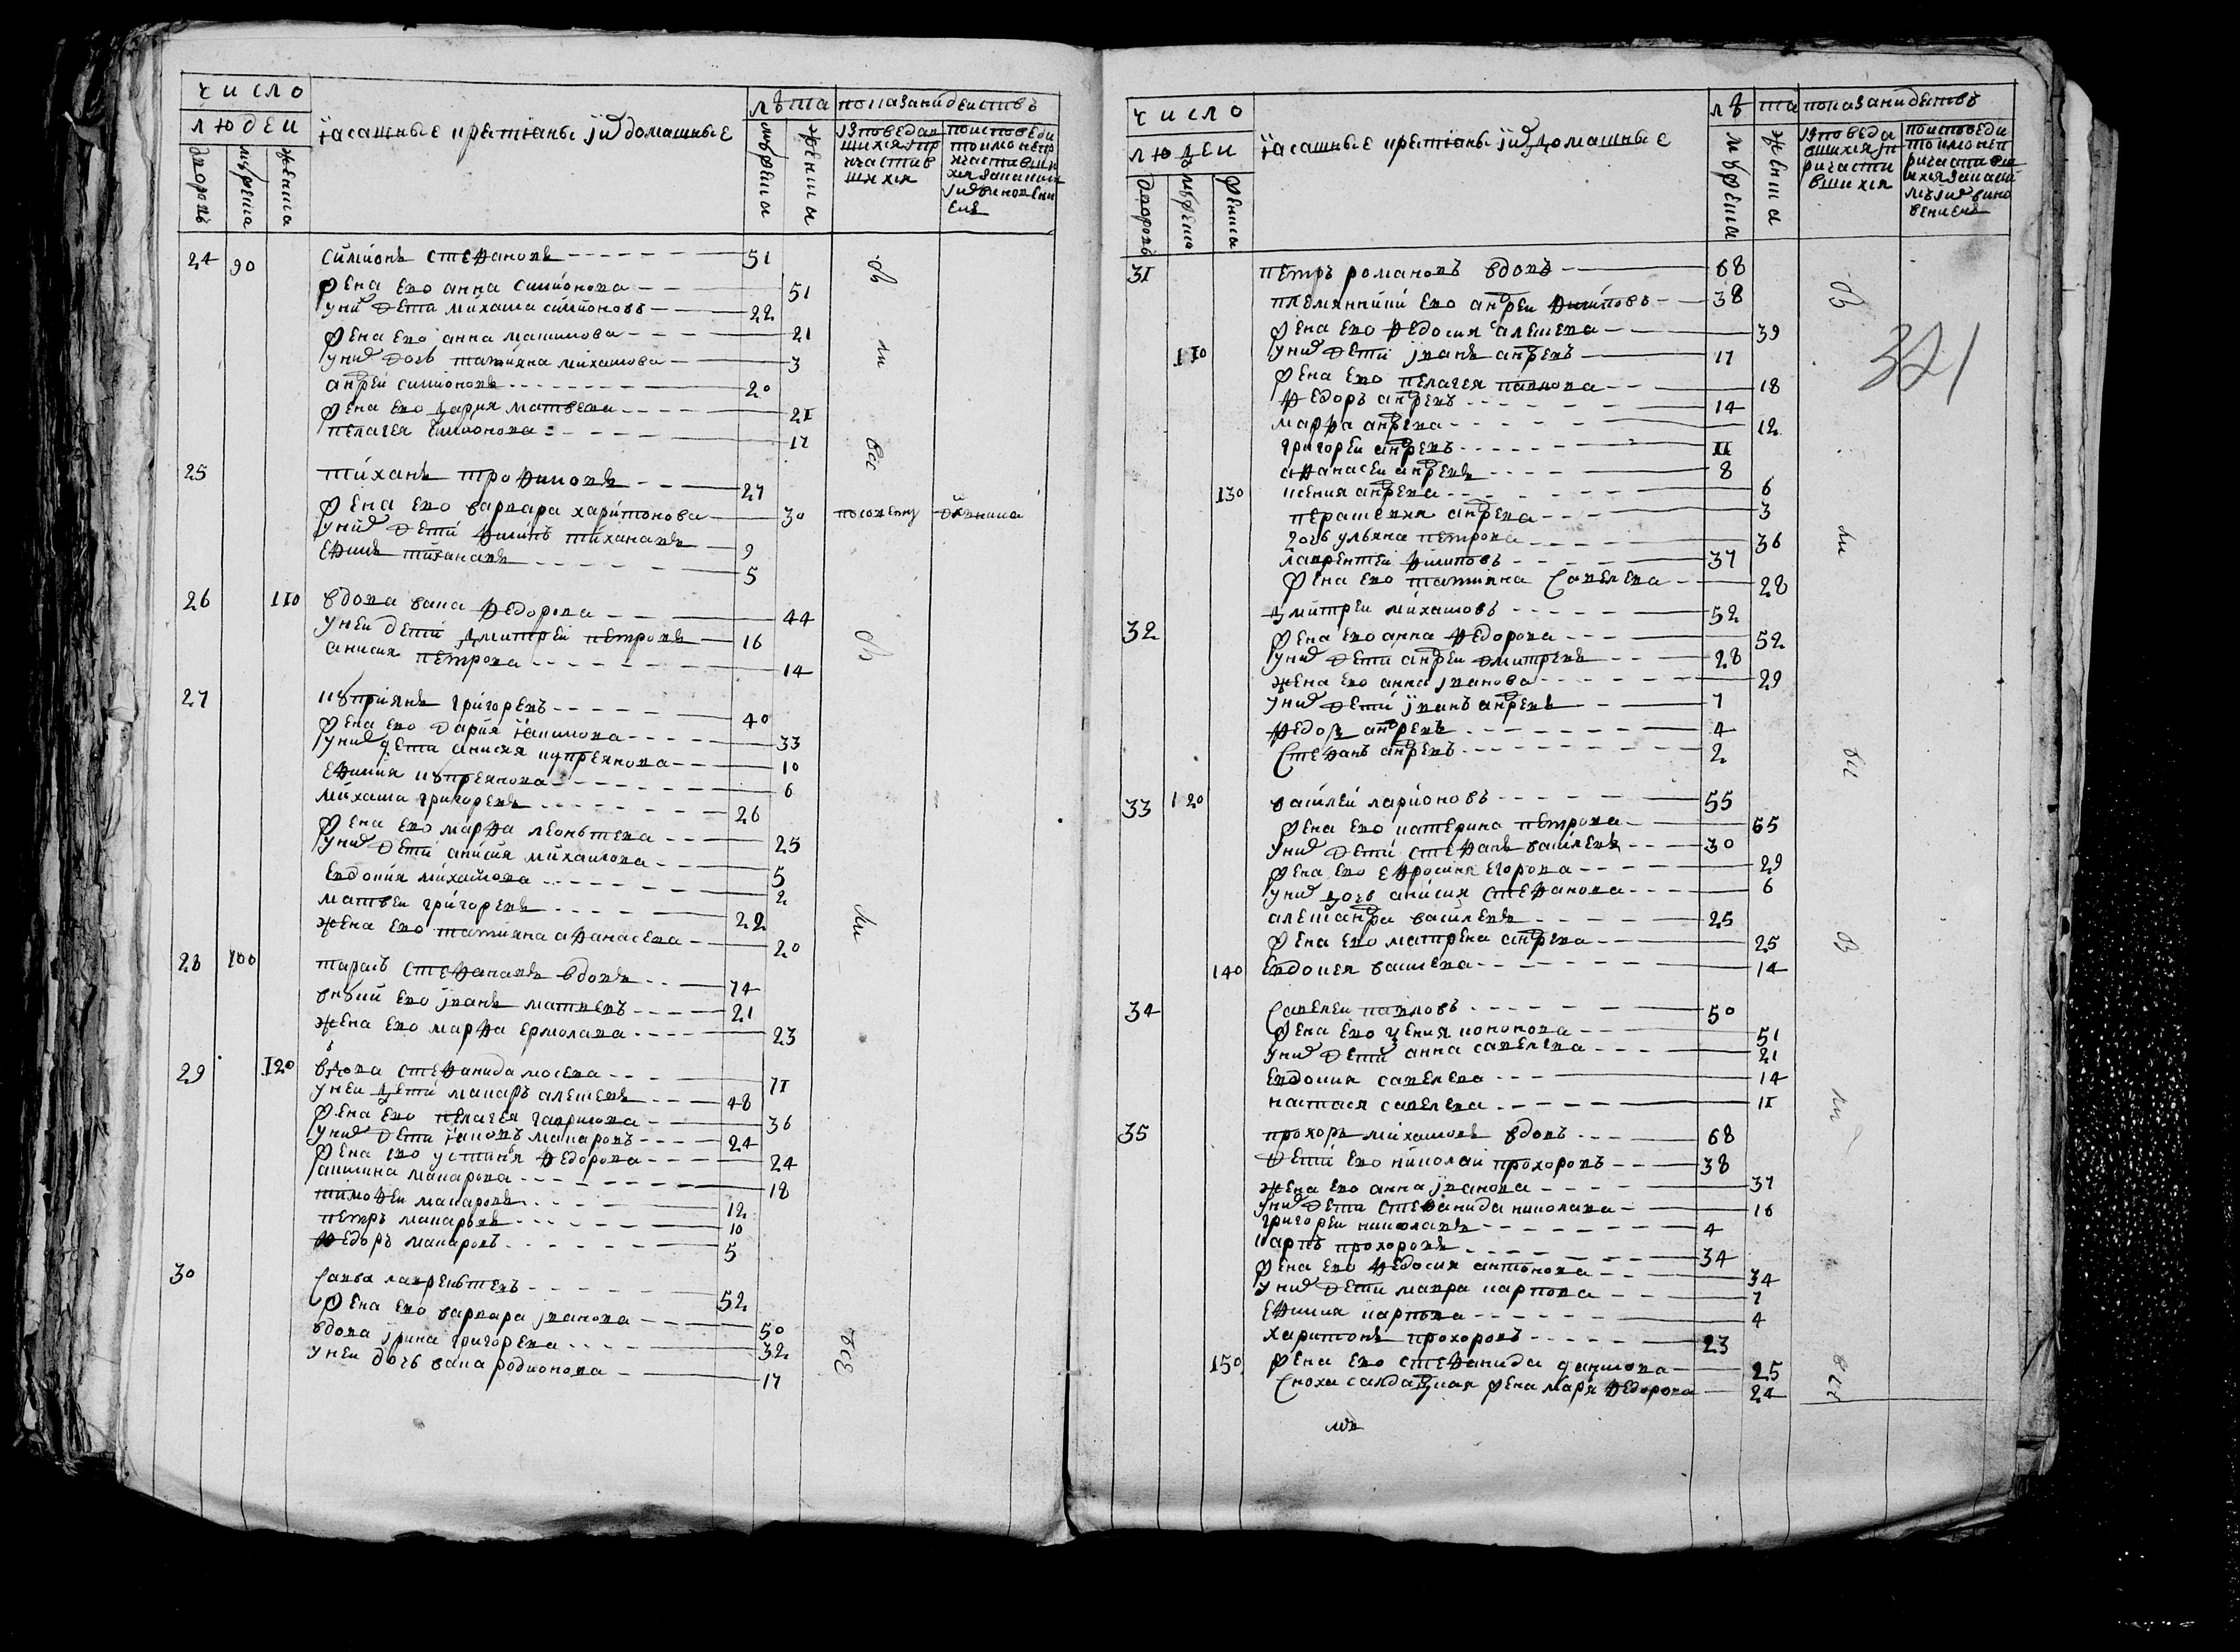 число
людеи
дворовъ
мужеска
женска
ясашные крестьяне и ихъ домашные
лѣта
мужеска
женска
показани действъ
исповедав
шихся и пр
ичастив
шихся
поисповеди
тоимо непр
ичастившы
хся
24 90 симионъ стефановъ 51
жена ево анна симионова 51
у них дети михаила симионовъ 22
жена ево анна максимова 21
у них дочь татияна михаилова 3
андрей симионовъ 20
жена ево дария матвеева 21
пелагея симионова 17
25 тиханъ трофимовъ 27
жена ево варвара харитонова 30
у них дети филипъ тихановъ 9
ефимъ тихановъ 5
26 110 вдова васа федорова 44
у неи дети дмитреи петровъ 16
анисия петрова 14
27 куприянъ григоревъ 40
жена ево дария якимова 33
у них дети анисия купреянова 10
ефимия купреянова 6
михаила григоревъ 26
жена ево марфа леонътева 25
у них дети анисия михаилова 5
евдокия михаилова 2
матвеи григоревъ 22
жена ево татияна афанасева 20
28 100 тарасъ стефановъ вдовъ 74
внукъ ево иванъ матвевъ 21
жена ево марфа ермолаева 23
29 120 вдова стефанида мосеева 71
у неи дети макаръ алексеевъ 48
жена ево пелагея гаврилова 36
у них дети яковъ макаровъ 24
жена ево устинья федорова 24
акилина макарова 18
тимофеи макаровъ 12
петръ макаровъ 10
федоръ макаровъ 5
30 савва лаврентьевъ 52
жена ево варвара иванова 50
вдова ирина григорева 32
у неи дочь васа родионова 17
число
людеи
дворовъ
мужеска
женска
ясашные крестьяне и ихъ домашные
лѣта
мужеска
женска
показани действъ
исповеда
вшихся и п
ричасти
вшихся
поисповеди
тоимо неп
ричасти вш
ихся
321
31 петръ романовъ вдовъ 68
племянникъ ево андреи филиповъ 38
жена ево федосия алексеева 39
110 у них дети иванъ андревъ 17
жена ево пелагея павлова 18
федоръ андревъ 14
марфа андрева 12
григореи андревъ 11
афанасеи андревъ 8
130 ксения андрева 6
парасковия андрева 3
дочь ульяна петрова 36
лаврентеи филиповъ 37
жена ево татияна савелева 28
32 дмитреи михаиловъ 52
жена ево анна федорова 52
у них дети андреи дмитревъ 28
жена ево анна иванова 29
у них дети иванъ андревъ 7
федоръ андревъ 4
стефанъ андревъ 2
33 120 василеи ларионовъ 55
жена ево катерина петрова 65
у них дети стефанъ василевъ 30
жена ево ефросиня егорова 29
у них дочь анисия стефанова 6
александра василевъ 25
жена ево матрена андрева 25
140 евдокея василева 14
34 савелеи павловъ 50
жена ево ксения кононова 51
у них дети анна савелева 21
евдокия савелева 14
настася савелева 11
35 прохоръ михаиловъ вдовъ 68
дети ево николаи прохоровъ 38
жена ево анна иванова 37
у них дети стефанида николаева 16
григореи николаевъ 4
карпъ прохоровъ 34
жена ево федосия антонова 34
у них дети мавра карпова 7
ефимия карпова 4
харитонъ прохоровъ 23
150 жена ево стефанида данилова 25
сноха салдацкая жена маря федорова 24